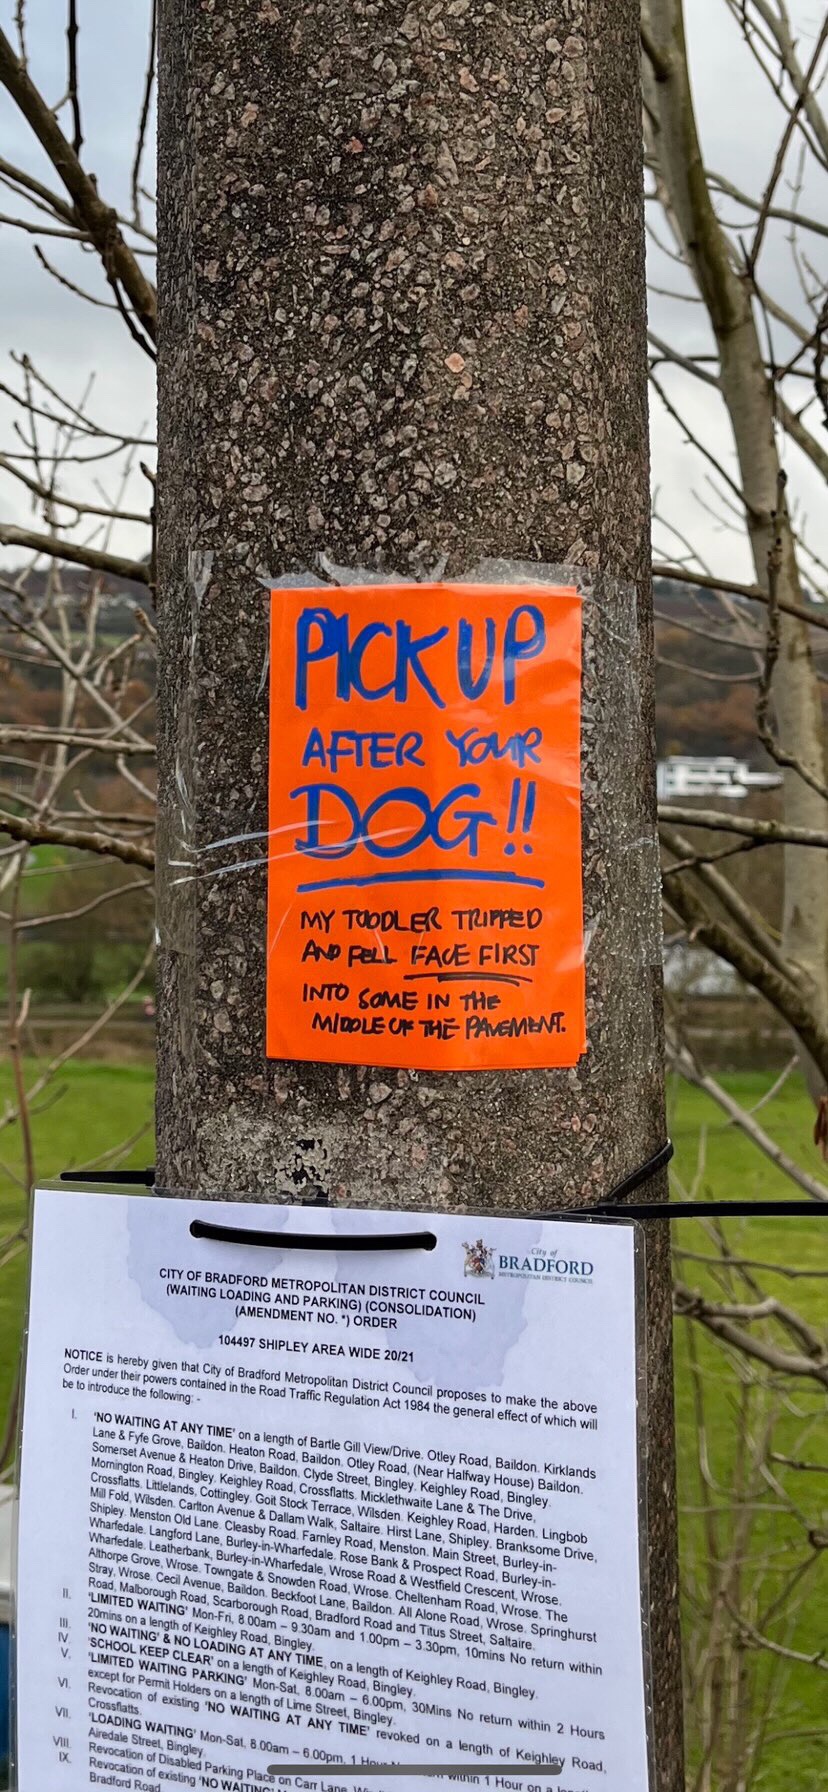 PICK UP
AFTER YOUR
DOG!!
MY TODDLER TRIPPED
AND FELL FACE FIRST
INTO SOME IN THE
MIDDLE OF THE PAVEMENT.
City of
BRADFORD
METROPOLITAN DISTRICT COUNCIL
CITY OF BRADFORD METROPOLITAN DISTRICT COUNCIL
(WAITING LOADING AND PARKING) (CONSOLIDATION)
(AMENDMENT NO. *) ORDER
104497 SHIPLEY AREA WIDE 20/21
NOTICE is hereby given that City of Bradford Metropolitan District Council proposes to make the above
Order under their powers contained in the Road Traffic Regulation Act 1984 the general effect of which will
be to introduce the following: -
I. 'NO WAITING AT ANY TIME' on a length of Bartle Gill View/Drive. Otley Road, Baildon. Kirklands
Lane & Fyfe Grove, Baildon. Heaton Road, Baildon. Otley Road, (Near Halfway House) Baildon.
Somerset Avenue & Heaton Drive, Baildon. Clyde Street, Bingley. Keighley Road, Bingley.
Mornington Road, Bingley. Keighley Road, Crossflatts. Micklethwaite Lane & The Drive,
Crossflatts. Littlelands, Cottingley. Goit Stock Terrace, Wilsden. Keighley Road, Harden. Lingbob
Mill Fold, Wilsden. Carlton Avenue & Dallam Walk, Saltaire. Hirst Lane, Shipley. Branksome Drive,
Shipley. Menston Old Lane. Cleasby Road. Farnley Road, Menston. Main Street, Burley-in-
Wharfedale. Langford Lane, Burley-in-Wharfedale. Rose Bank & Prospect Road, Burley-in-
Wharfedale. Leatherbank, Burley-in-Wharfedale, Wrose Road & Westfield Crescent, Wrose.
Althorpe Grove, Wrose. Towngate & Snowden Road, Wrose. Cheltenham Road, Wrose. The
Stray, Wrose. Cecil Avenue, Baildon. Beckfoot Lane, Baildon. All Alone Road, Wrose. Springhurst
Road, Malborough Road, Scarborough Road, Bradford Road and Titus Street, Saltaire.
II. 'LIMITED WAITING' Mon-Fri, 8.00am – 9.30am and 1.00pm – 3.30pm, 10mins No return within
20mins on a length of Keighley Road, Bingley.
III. 'NO WAITING' & NO LOADING AT ANY TIME, on a length of Keighley Road, Bingley.
IV. 'SCHOOL KEEP CLEAR' on a length of Keighley Road, Bingley.
V. 'LIMITED WAITING PARKING' Mon-Sat, 8.00am – 6.00pm, 30Mins No return within 2 Hours
except for Permit Holders on a length of Lime Street, Bingley.
VI. Revocation of existing 'NO WAITING AT ANY TIME' revoked on a length of Keighley Road,
Crossflatts.
VII. 'LOADING WAITING' Mon-Sat, 8.00am – 6.00pm, 1 Hour within 1 Hour on a
Airedale Street, Bingley.
VIII. Revocation of Disabled Parking Place on Carr Lane,
IX. Revocation of existing 'NO WAITING
Bradford Road